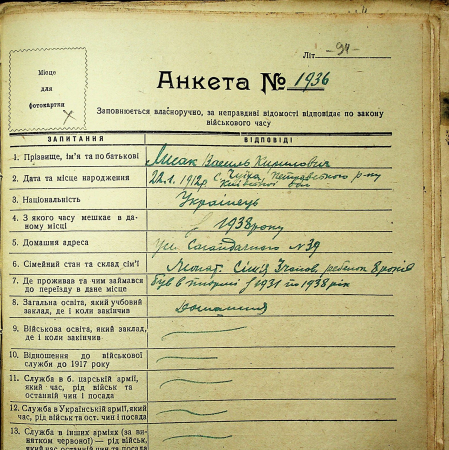 Літ -94-
Місце
для
фотокартки
Анкета № 1936
Заповнюється власноручно, за неправдиві відомості відповідає по закону
військового часу
ЗАПИТАННЯ ВІДПОВІДІ
1. Прізвище, ім'я та по батькові Лисак Василь
2. Дата та місце народження 22.1.1912р. с.
Київської обл
3. Національність Українець
4. З якого часу мешкає в да-
ному місці з 1938 року
5. Домашня адреса Ул. Сагайдачного №39
6. Сімейний стан та склад сім'ї Сімя 8 років
7. Де проживав та чим займався
до переїзду в дане місце був в з 1931 по 1938 рік
8. Загальна освіта, який учбовий
заклад, де і коли закінчив Домашня
9. Військова освіта, який заклад,
де і коли закінчив
10. Відношення до військової
служби до 1917 року
11. Служба в б. царській армії,
який час, рід військ та
останній чин і посада
12. Служба в Українській армії, який
час, рід військ та ост. чин і посада
13. Служба в інших арміях (за ви-
нятком червоної) — рід військ,
який час, останній чин та посада